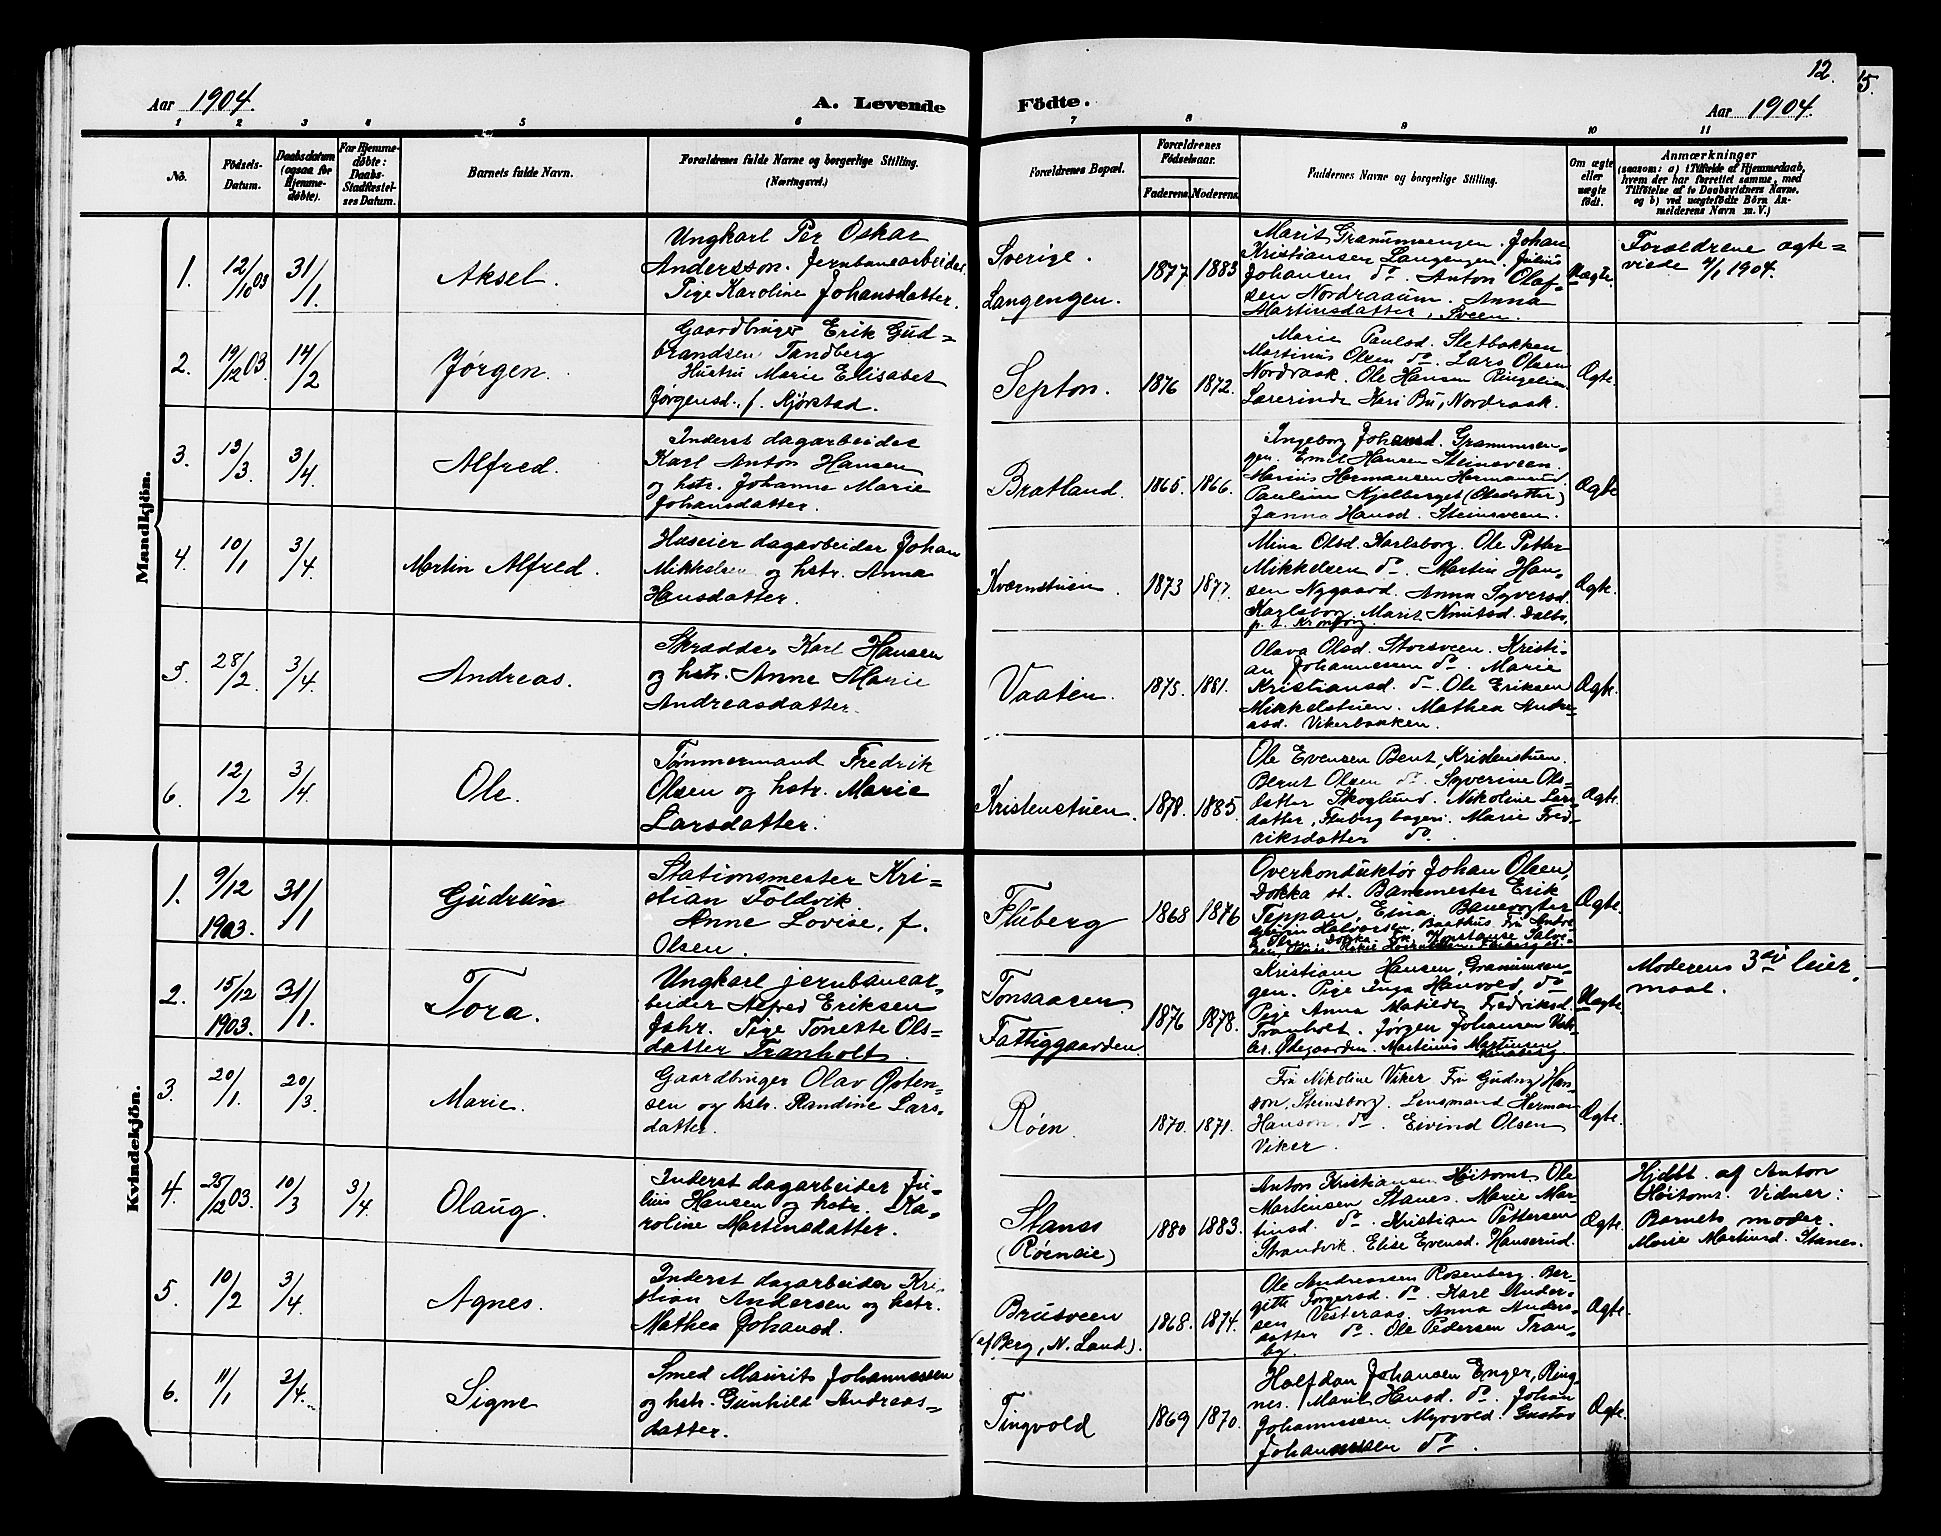 12.
15.
Aar 1904.
A. Levende Fødte.
Aar 1904.
1 2 3 4 5 6 7 8 9 10 11
No.
Födsels-
Datum.
Daabsdatum
(ogsaa for
Hjemme-
døbte).
For Hjemme-
døbte:
Daabs-
Stadfæstel-
ses Datum.
Barnets fulde Navn.
Forældrenes fulde Navne og borgerlige Stilling.
(Næringsvei.)
Forældrenes Bopæl.
Forældrenes
Födselsaar.
Faderens. Moderens.
Faddernes Navne og borgerlige Stilling.
Om ægte
eller
uægte
født.
Anmærkninger
(saasom: a) i Tilfælde af Hjemmedaab,
hvem der har forrettet samme, med
Tilföielse af to Daabsvidners Navne,
og b) ved uægtefødte Börn An-
melderens Navn m. V.)
Mandkjön.
1.
12/10 03
31/1
Aksel.
Ungkarl Per Oskar
Andersson. Jernbanearbeider.
Pige Karoline Johansdatter.
Sverige.
Langengen.
1877 1883
Marit Granumsengen. Johan
Kristiansen Langengen. Julius
Johansen do. Anton Olaf-
sen Nordraaum. Anna
Martinsdatter, Sveen.
Uægte.
Forældrene ægte-
viede 4/1 1904.
2.
19/12 03.
14/2
Jørgen.
Gaardbruger Erik Gud-
brandsen Tandberg
Hustru Marie Elisabet
Jørgensd. f. Kjørstad.
Septon.
1876 1872.
Marie Paulsd. Sletbakken
Martinus Olsen do. Lars Olsen
Nordraak. Ole Hansen Ringelien
Lærerinde Kari Bu, Nordraak.
Ægte.
3.
13/3
3/4
Alfred.
Inderst dagarbeider
Karl Anton Hansen
og hstr. Johanne Marie
Johansdatter.
Bratland.
1865. 1866.
Ingeborg Johansd. Granumsen-
gen. Emil Hansen Steinsveen.
Marius Hermansen Hermanrud.
Pauline Kjølberget (Olsdatter)
Janna Hansd. Steinsveen.
Ægte
4.
10/1
3/4.
Martin Alfred.
Huseier dagarbeider Johan
Mikkelsen og hstr. Anna
Hansdatter.
Kværnstuen.
1873 1877.
Mina Olsd. Karlsborg. Ole Petter
Mikkelsen do. Martin Han-
sen Nygaard. Anna Syversd.
Karlsborg. Marit Knutsd. Dalbo,
p. t. Kronborg.
Ægte.
5.
28/2.
3/4.
Andreas.
Skrædder Karl Hansen
og hstr. Anne Marie
Andreasdatter.
Vaaten.
1875. 1881.
Olava Olsd. Storsveen. Kristi-
an Johannessen do. Marie
Kristiansd. do. Ole Eriksen
Mikkelstuen. Mathea Andre-
asd. Vikerbakken.
Ægte.
6.
12/2
3/4.
Ole.
Tømmermand Fredrik
Olsen og hstr. Marie
Larsdatter.
Kristenstuen.
1878. 1885.
Ole Evensen Bent, Kristenstuen.
Bernt Olsen do. Syverine Ols-
datter Skoglund. Nikoline Lars-
datter, Fluberg bageri. Marie Fred-
riksdatter do.
Ægte.
Kvindekjön.
1.
9/12
1903.
31/1
Gudrun
Stationsmester Kri-
stian Foldvik
Anne Lovise, f.
Olsen.
Fluberg
1868 1876
Overkonduktør Johan Olsen,
Dokka st. Banemester Erik
Teppan, Eina. Banevogter
Halvorsen.
Olsen, Dokka. Fru Konstanse
Ægte.
2.
15/12
1903.
31/1.
Tora.
Ungkarl jernbanear-
beider Alfred Eriksen
Johr. Pige Tonette Ols-
datter Tranholt.
Tonsaasen
Fattiggaarden.
1876 1878.
Kristian Hansen, Granumsen-
gen. Pige Inga Hansd, do
Pige Anna Matilde Fredriksd.
Tranholt. Jørgen Johansen
Ødegaarden. Martinus Martinsen
Uægte.
Moderens 3die leier-
maal.
3.
20/1.
20/3.
Marie.
Gaardbruger Olav Østen-
sen og hstr. Randine Lars-
datter.
Røen.
1870. 1871.
Fru Nikoline Viker. Fru Gudny Han-
son, Steinsborg. Lensmand Herman
Hanson, do. Eivind Olsen
Viker.
Ægte.
4.
25/12 03.
10/3
3/4.
Olaug.
Inderst dagarbeider Ju-
lius Hansen og hstr. Ka-
roline Martinsdatter.
Stanes
(Røeneie)
1880 1883.
Anton Kristiansen Høitomt. Ole
Martinsen Stanes. Marie Mar-
tinsd. do. Kristian Pettersen
Strandvik. Elise Evensd. Hanserud.
Ægte.
Hjdbt. af Anton
Høitomt. Vidner:
Barnets moder.
Marie Martinsd. Stanes.
5.
10/2
3/4.
Agnes.
Inderst dagarbeider Kri-
stian Andersen og hstr.
Mathea Johansd.
Brusveen
(af Berg, N. Land).
1868. 1874.
Ole Andreassen Rosenberg. Ber-
gitte Torgersd. do. Karl Ander-
sen Vesteraas. Anna Anders-
datter do. Ole Pedersen Tran-
by.
Ægte.
6.
11/1
3/4.
Signe
Smed Maurits Johannessen
og hstr. Gunhild Andreas-
datter.
Tingvold
1869 1870.
Halfdan Johansen Enger, Ring-
nes. Marit Hansd. do. Johan
Johannessen Myrvold. Gustav
Johannessen do.
Ægte.